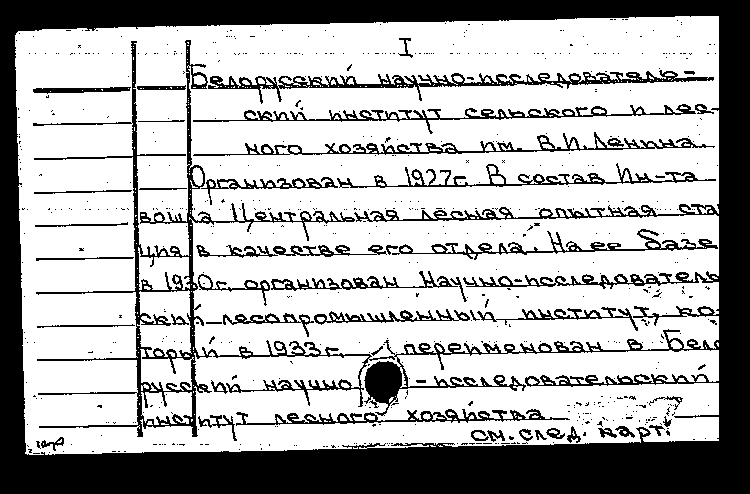 I
Белорусский научно-исследователь-
ский институт сельского и лес-
ного хозяйства им. В.И.Ленина.
Организован в 1927г. В состав Ин-та
вошла Центральная лесная опытная ста
ция в качестве его отдела. На ее базе
в 1930г. организован Научно-исследователь
ский лесопромышленный институт, ко-
торый в 1933г. переименован в Бело
русский научно-исследовательский
институт лесного хозяйства
см. след. карт.